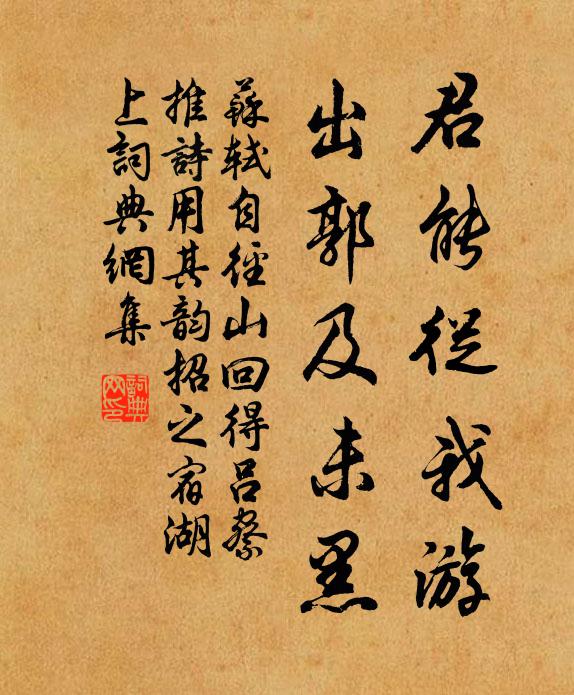 君能從我游
出郭及未黑
蘇軾自徑山回得呂察
推詩用其韵招之宿湖
上詞典網集
詞典
网印